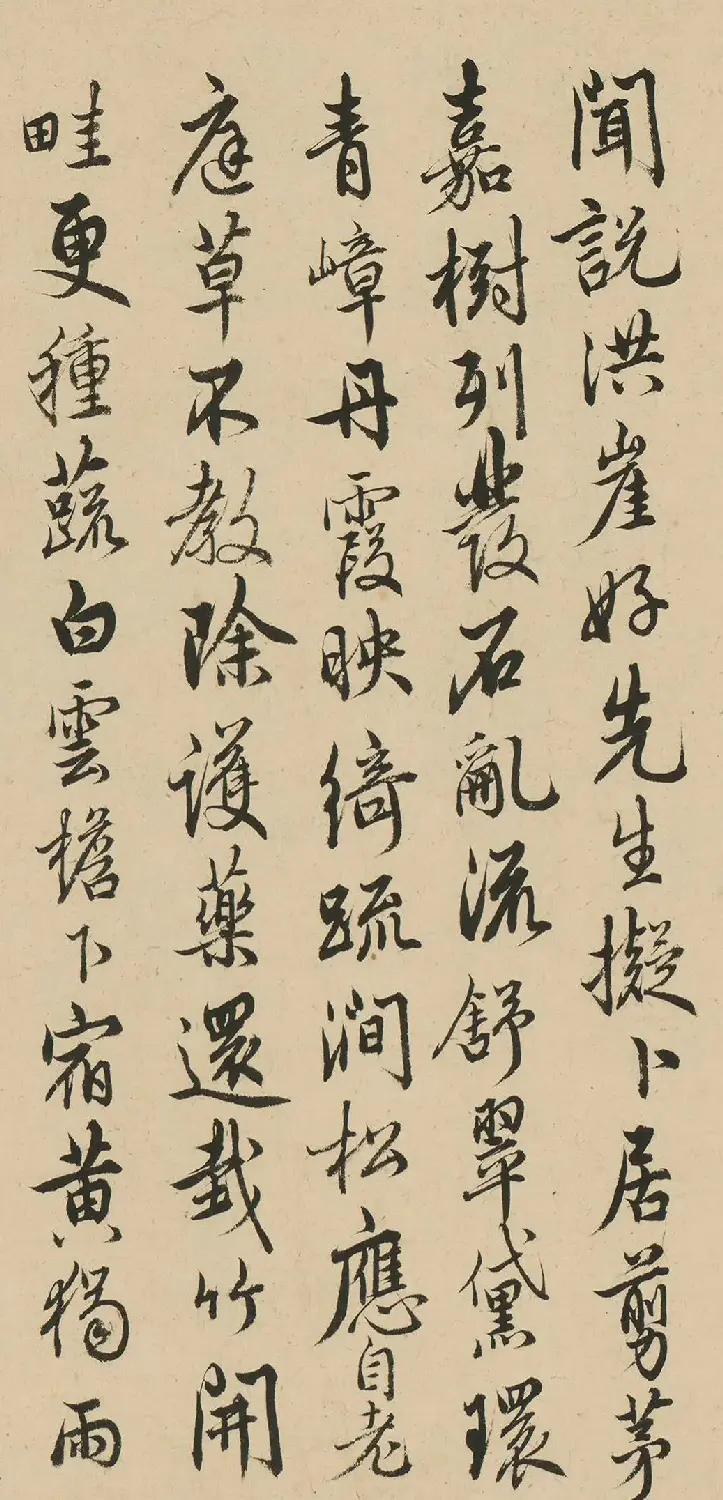 聞說洪崖好先生擬卜居剪茅
嘉樹列發石亂流舒翠黛環
青嶂丹霞映綺疏澗松應自老
庭草不教除護藥還栽竹開
畦更種蔬白雲檐下宿黃獨雨